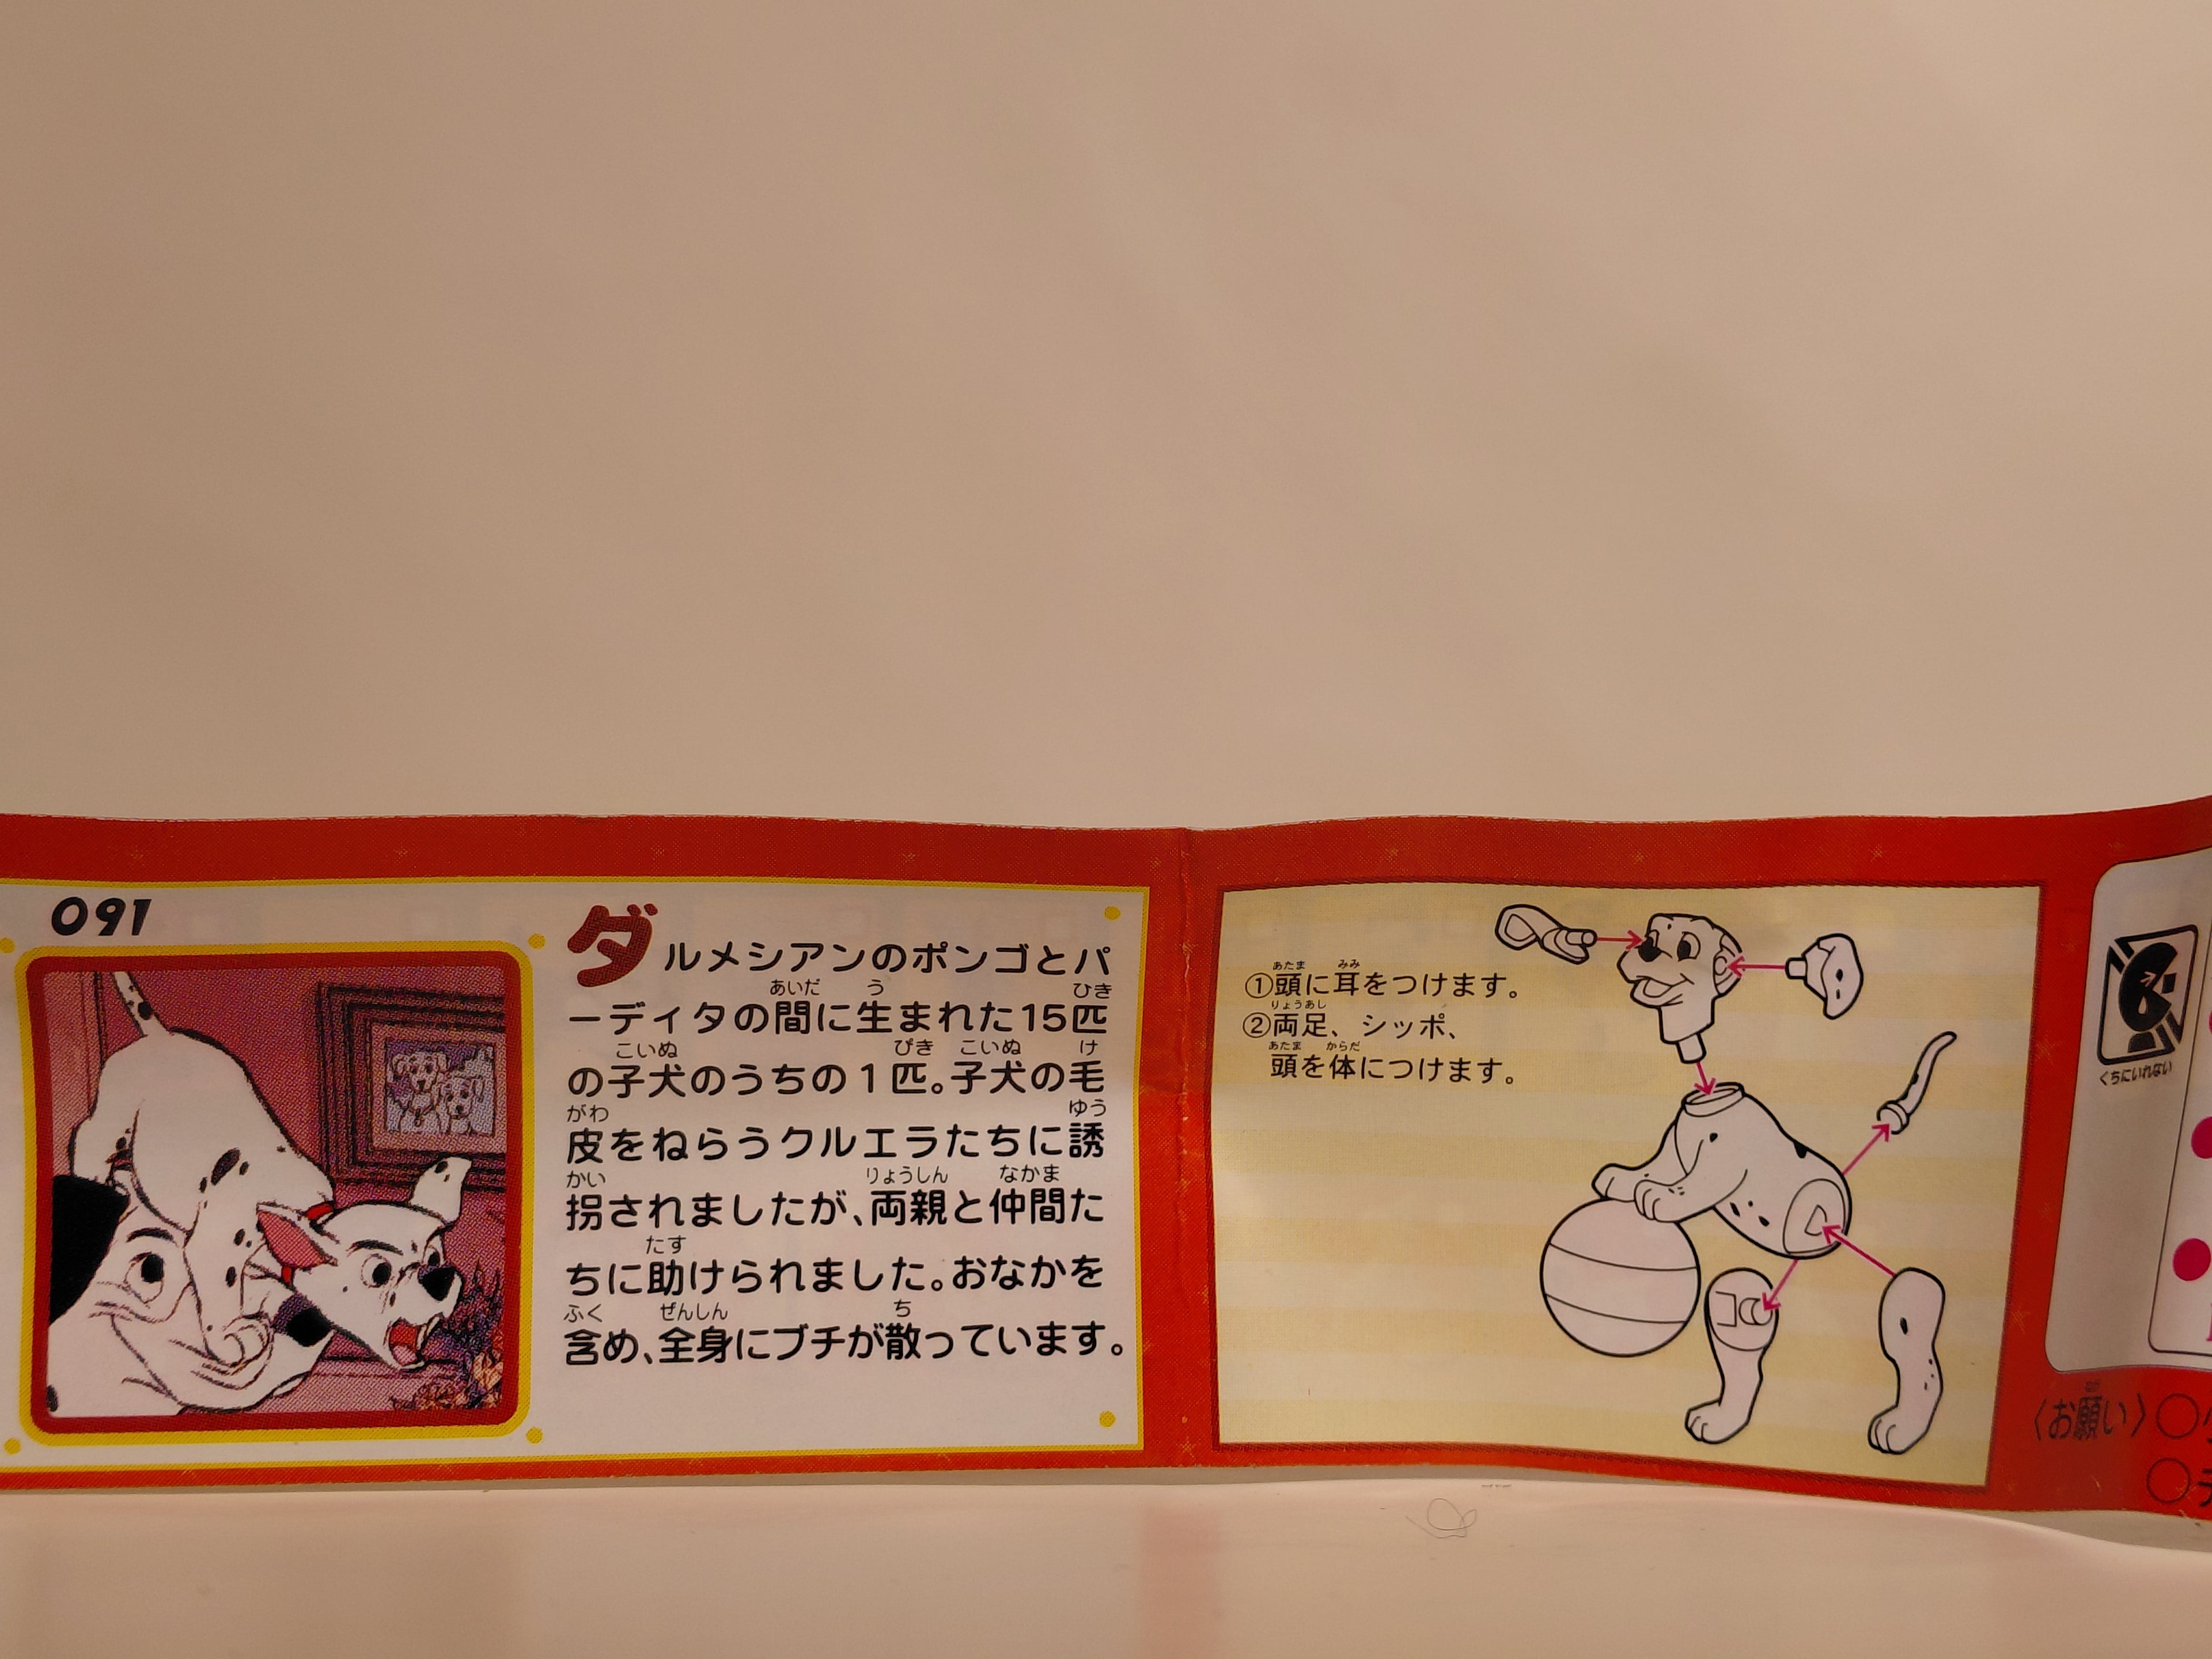 091
ダルメシアンのポンゴとパ
ーディタの間に生まれた15匹
の子犬のうちの1匹。子犬の毛
皮をねらうクルエラたちに誘
拐されましたが、両親と仲間た
ちに助けられました。おなかを
含め、全身にブチが散っています。
①頭に耳をつけます。
②両足、シッポ、
頭を体につけます。
くちにいれない
〈お願い〉